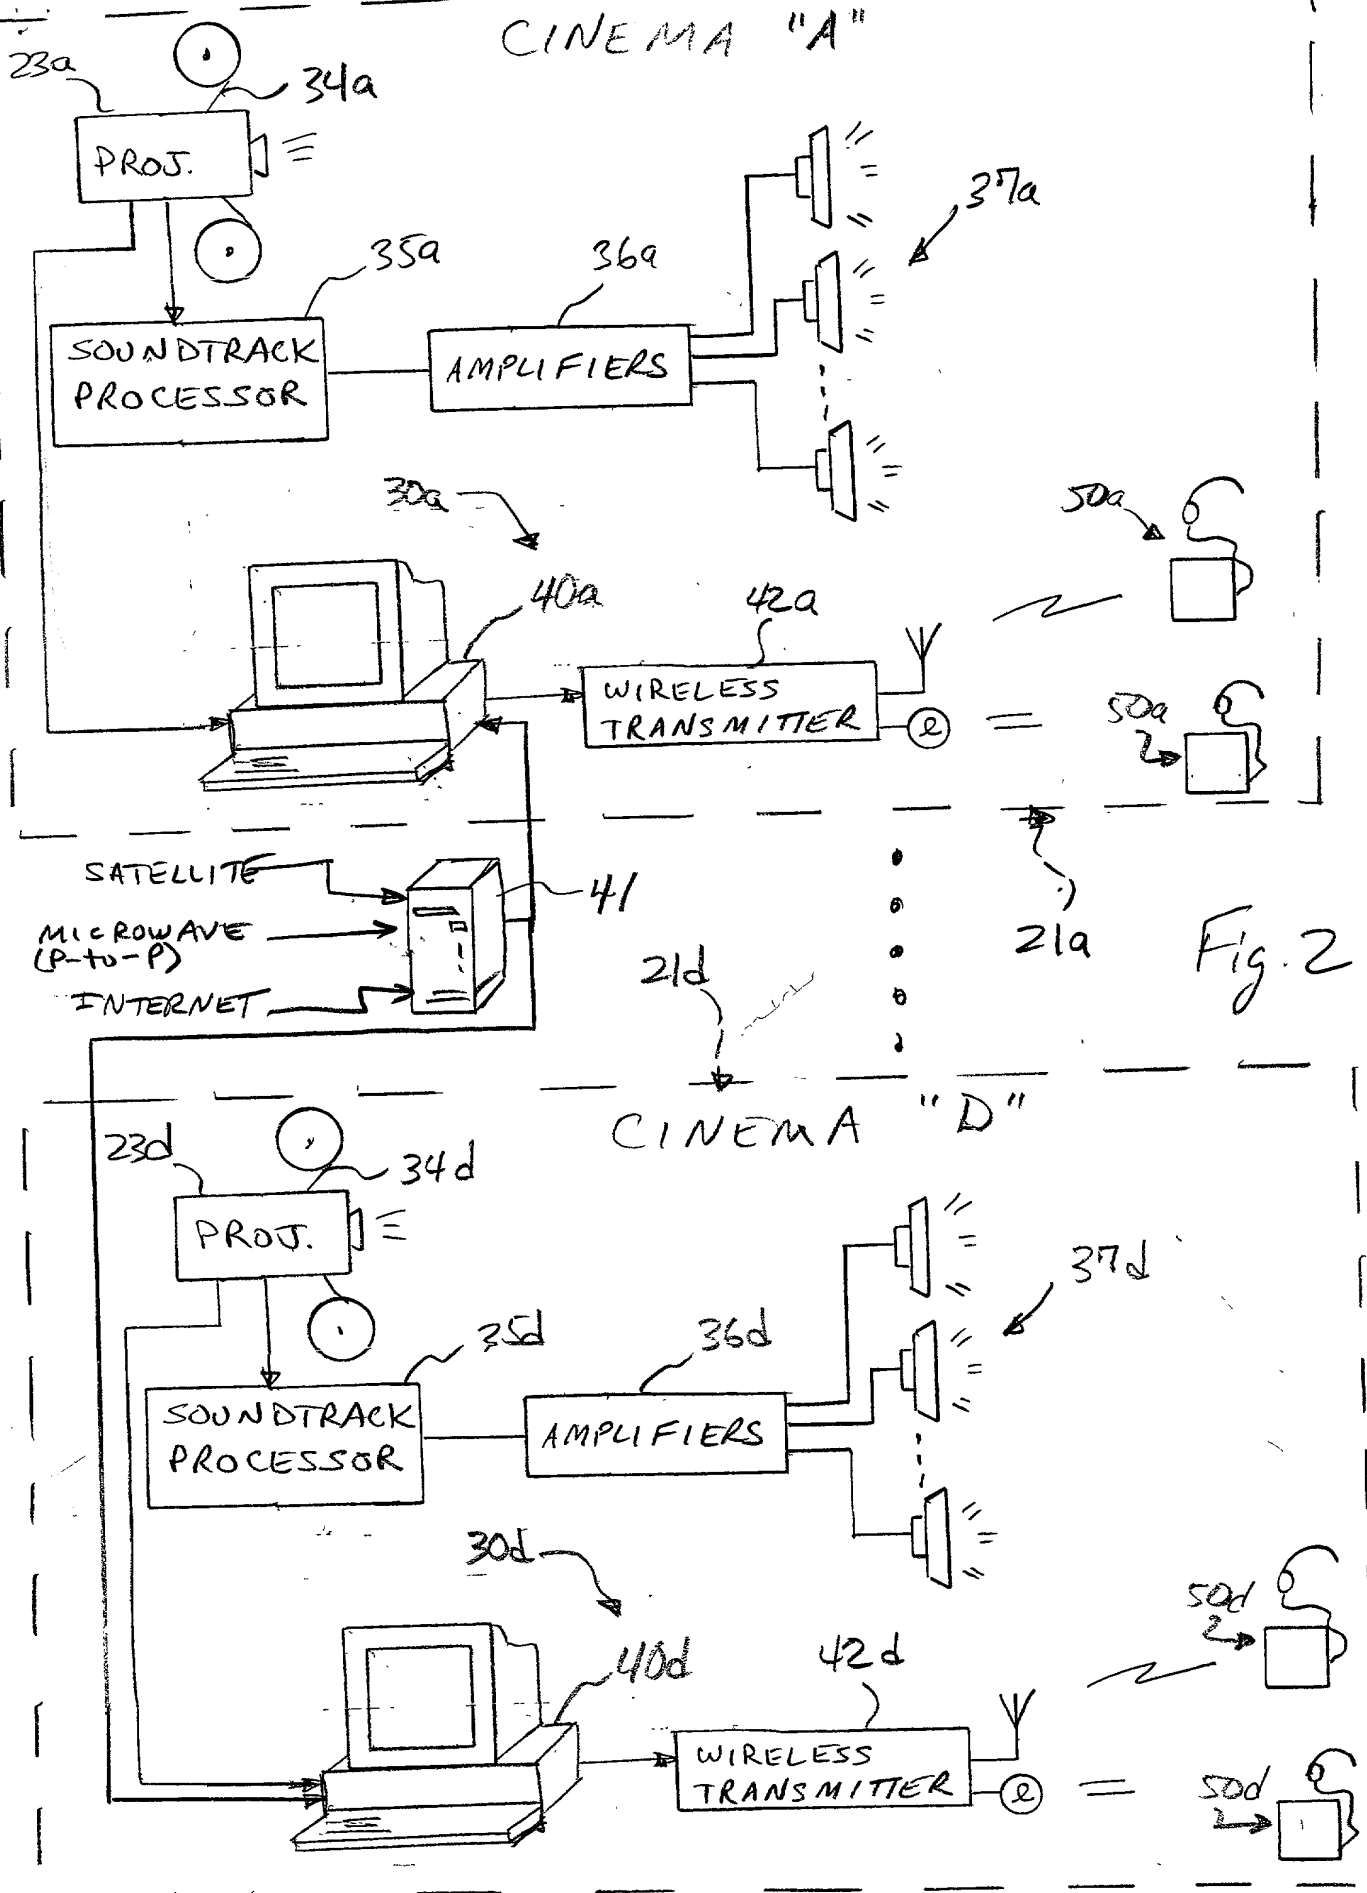 CINEMA "A"
23a
34a
PROJ.
37a
35a
36a
SOUNDTRACK
PROCESSOR
AMPLIFIERS
30a
50a
40a
42a
WIRELESS
TRANSMITTER
e
50a
SATELLITE
41
MICROWAVE
(P-to-P)
21a
Fig. 2
21d
INTERNET
CINEMA "D"
23d
34d
PROJ.
37d
35d
36d
SOUNDTRACK
PROCESSOR
AMPLIFIERS
30d
50d
40d
42d
WIRELESS
TRANSMITTER
e
50d